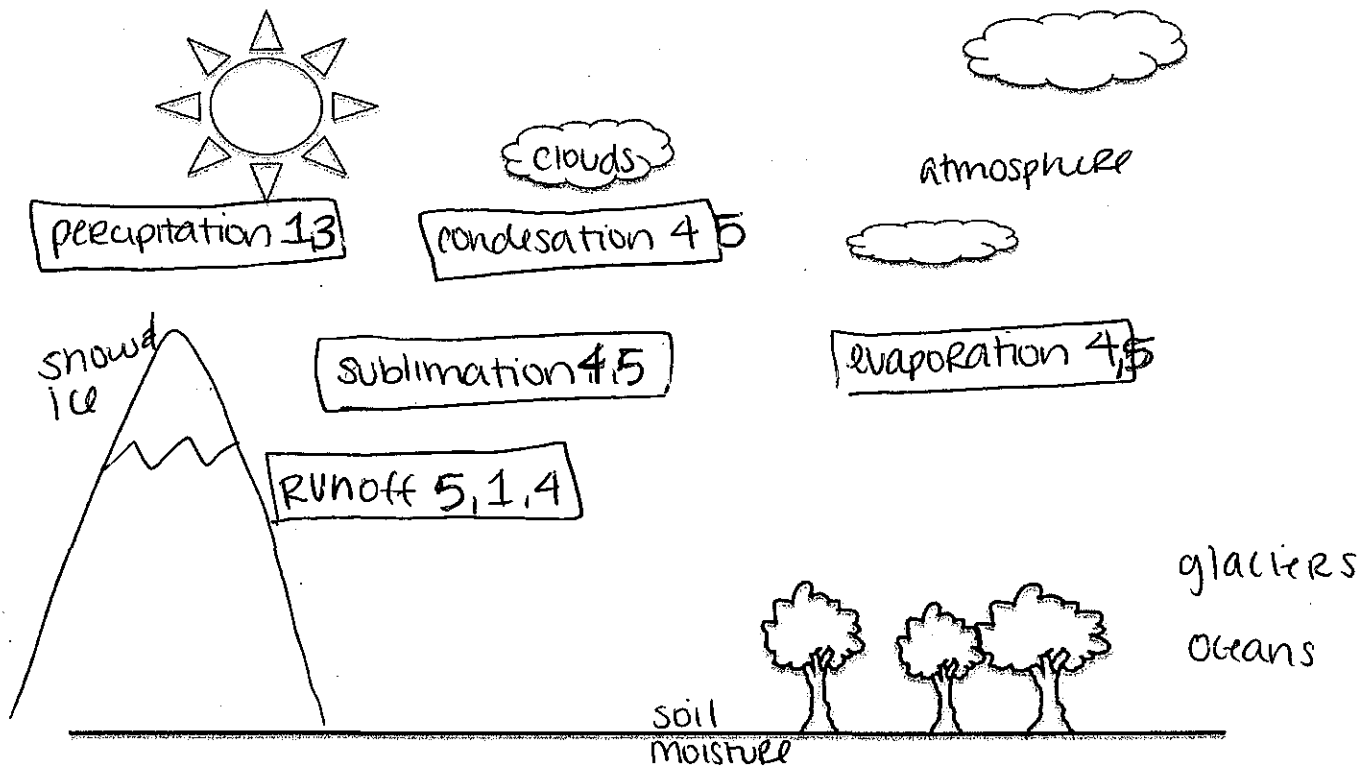 clouds
atmosphere
percipitation 1,3
condesation 4 5
snow &
ice
sublimation 4,5
evaporation 4,5
Runoff 5,1,4
glaciers
oceans
soil
moisture